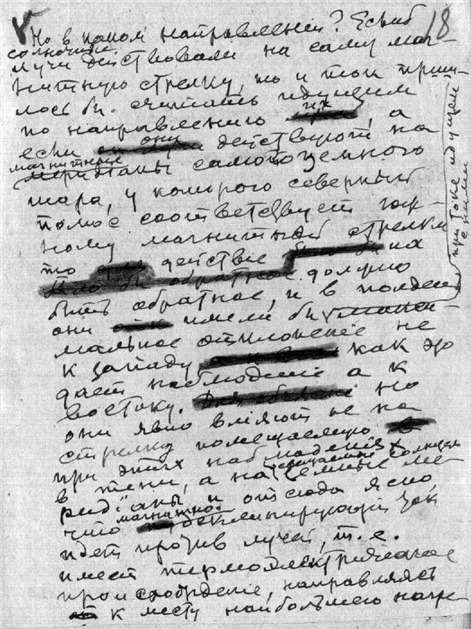 18
Но в каком направлении? Если б
солнечные
лучи действовали на саму маг-
нитную стрелку, то и ток приш-
лось бы считать идущим
по направлению их, а
если они действуют на
магнитные
меридианы самого земного
шара, у которого северный
полюс соответствует юж-
ному магнитной стрелки
то действие их
должно
быть обратное, и в полдень
они имели бы макси-
мальное отклонение не
к западу как это
дает наблюдение а к
востоку. Но
они явно влияют не на
стрелку помещаемую
при этих наблюдениях
в тени, а на освещенные солнцем
земные ме-
ридіаны и отсюда ясно,
что магнитное
деклинирующий ток
идет против лучей, т.е.
имеет термоэлектрическое
происхождение, направляясь
к месту наибольшего нагре-
при токе идущем
с ними